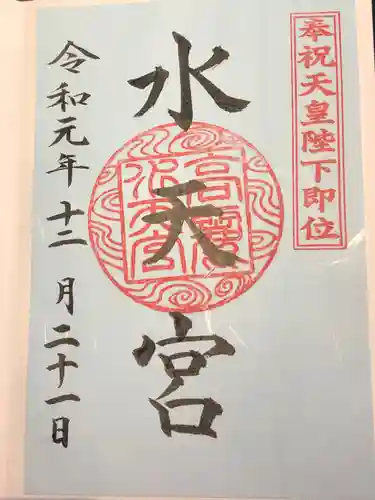 奉祝天皇陛下即位
水天宮
令和元年十二月二十一日